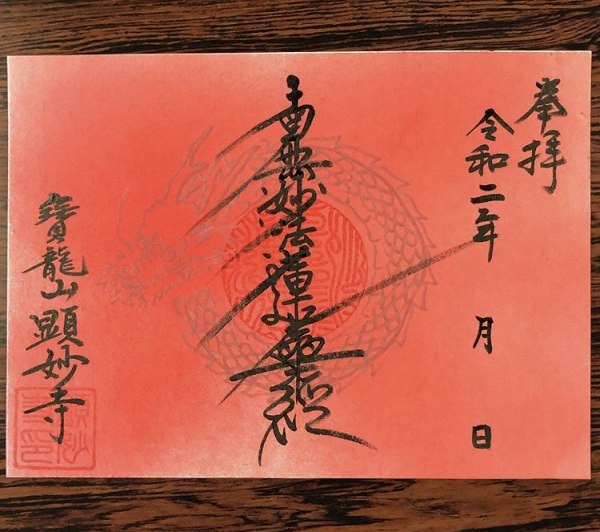 奉拝
令和二年 月 日
南無妙法蓮華経
寳龍山顕妙寺